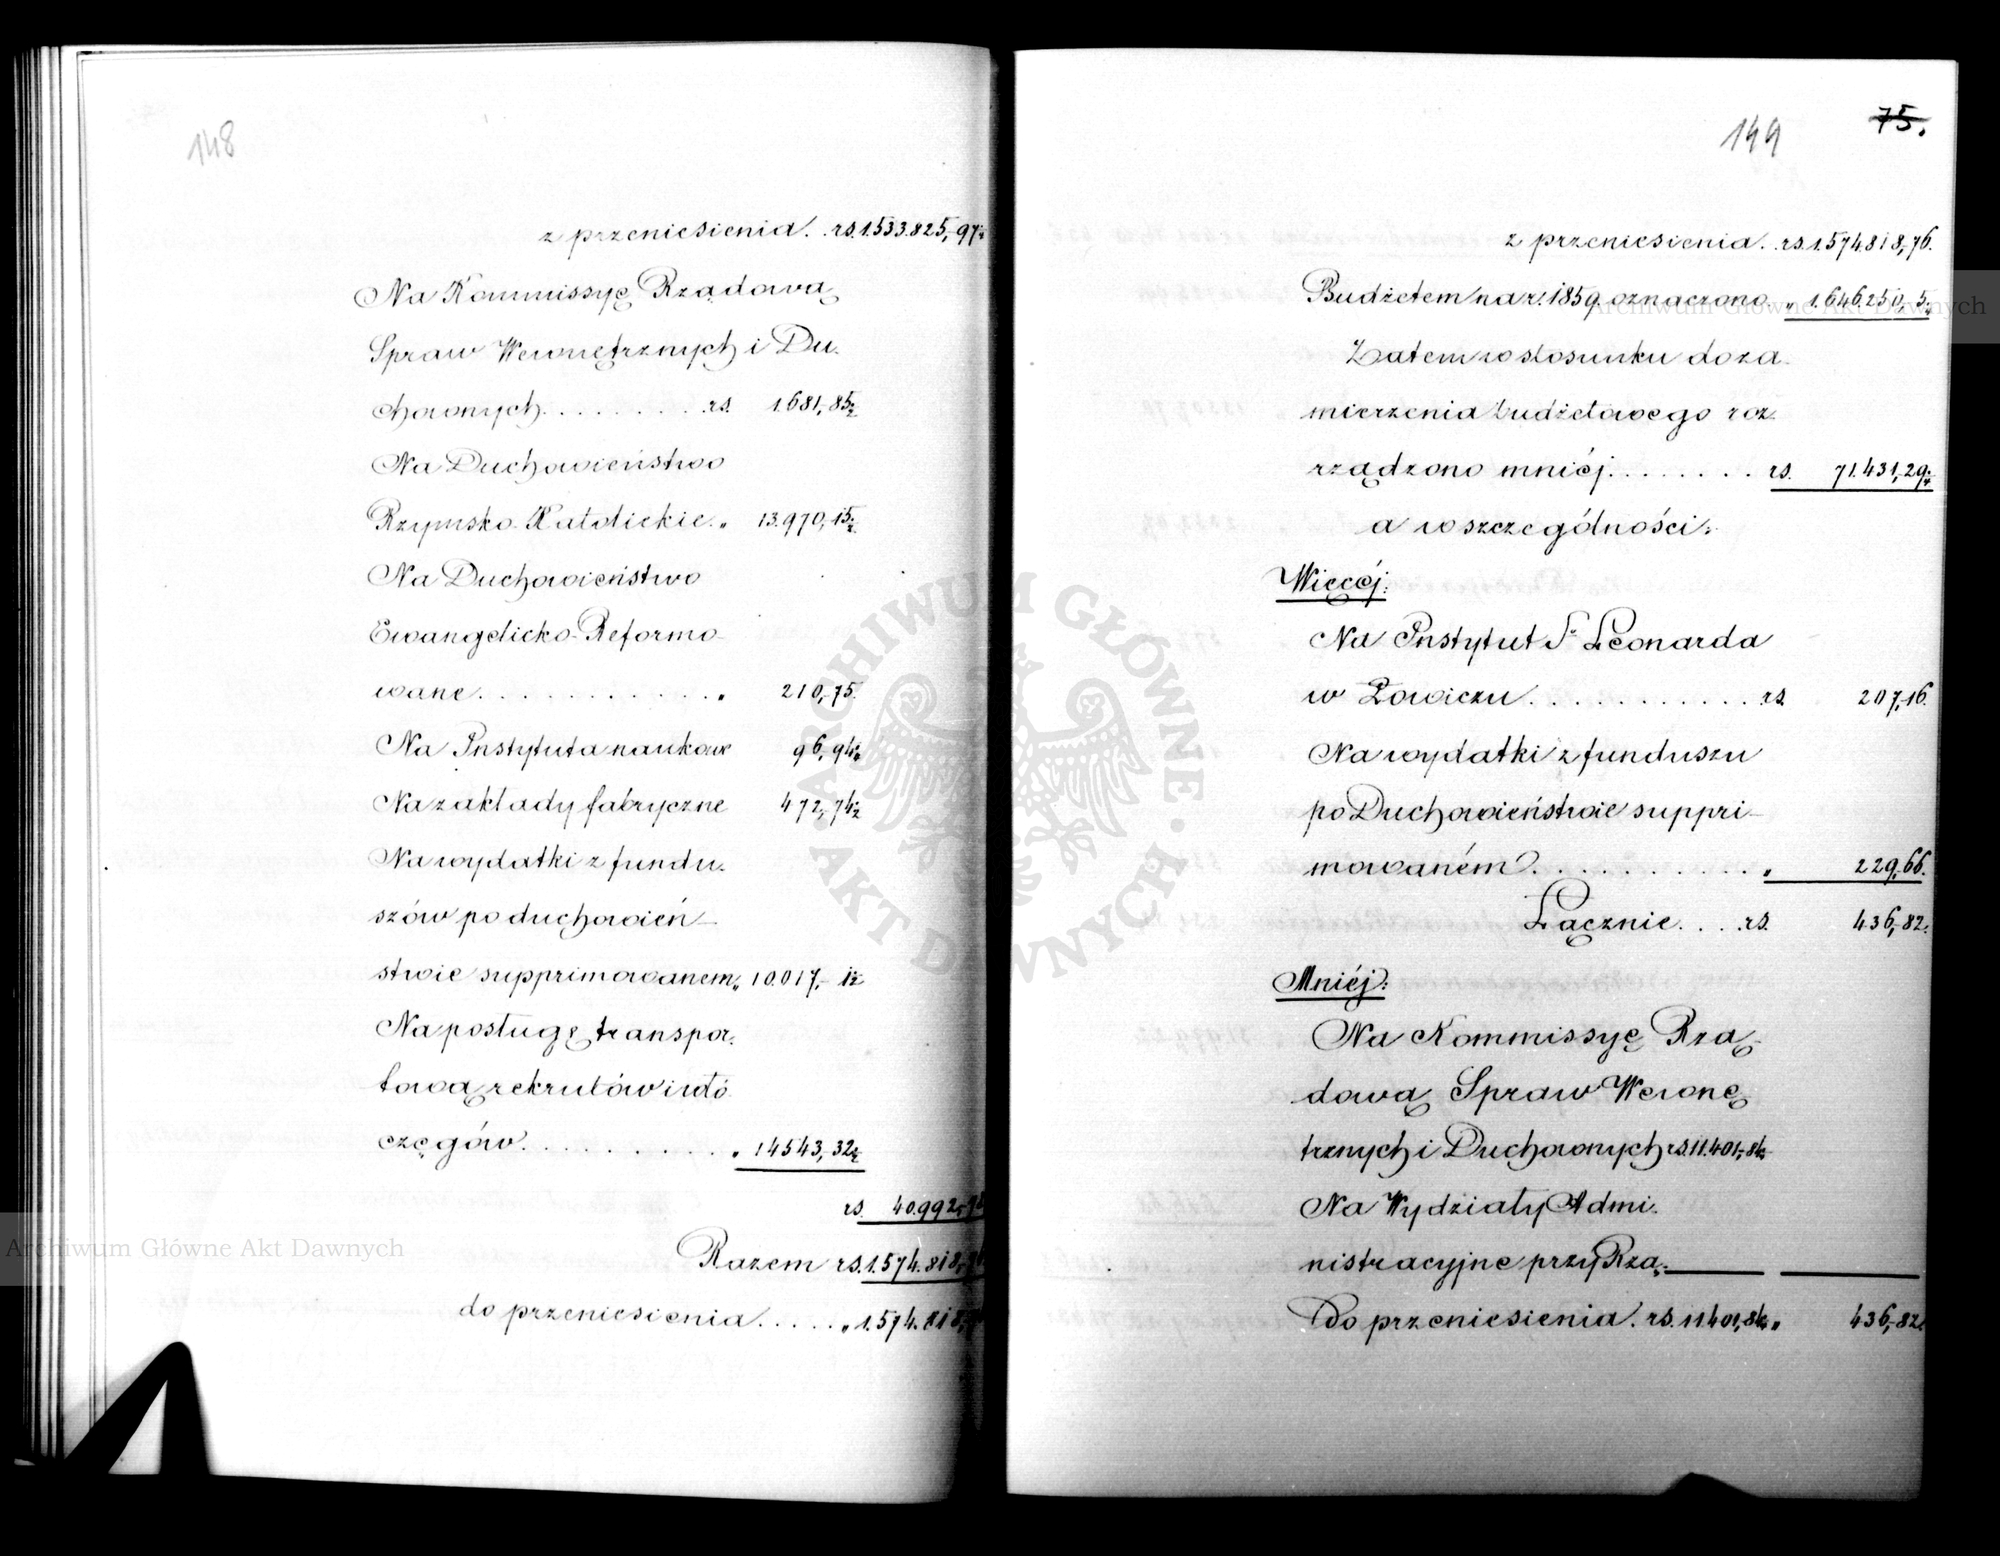 148
z przeniesienia. rs. 1.533.825,-97½
Na Kommissyę Rządową
Spraw Wewnętrznych i Du-
chownych. . . . . . . . rs. 1.681,-85½
Na Duchowieństwo
Rzymsko-Katolickie. „ 13.970,-15½
Na Duchowieństwo
Ewangelicko-Reformo-
wane. . . . . . . . . . . „ 210,-75.
Na Instytuta naukowe 96,-94
Na zakłady fabryczne 472,-74½
Na wydatki z fundu-
szów po duchowień-
stwie supprimowanem „ 10.017,-1½
Na posługę transpor-
tową rekrutów i włó-
częgów. . . . . . . . . . „ 14543,-32
rs. 40.992,-
Razem rs. 1.574.818,-
do przeniesienia. . . . . „ 1.574.818,-
149
75.
z przeniesienia. rs. 1.574.818,-76.
Budżetem na r. 1859. oznaczono. „ 1.646.250,-5
Zatem w stosunku do za-
mierzenia budżetowego roz-
rządzono mniéj. . . . . . . rs. 71.431,-29
a w szczególności:
Więcéj:
Na Instytut Sgo Leonarda
w Łowiczu. . . . . . . . . . . rs. 207,-16.
Na wydatki z funduszu
po Duchowieństwie suppri-
mowaném. . . . . . . . . . „ 229,-66.
Łącznie. . . . rs. 436,-82.
Mniéj:
Na Kommissyę Rzą-
dową Spraw Wewnę-
trznych i Duchownych rs. 11.401,-84
Na Wydziały Admi-
nistracyjne przy Rzą-
Do przeniesienia. rs. 11401,-84 „ 436,-82.
Archiwum Główne Akt Dawnych
Archiwum Główne Akt Dawnych
ARCHIWUM GŁÓWNE · AKT DAWNYCH ·